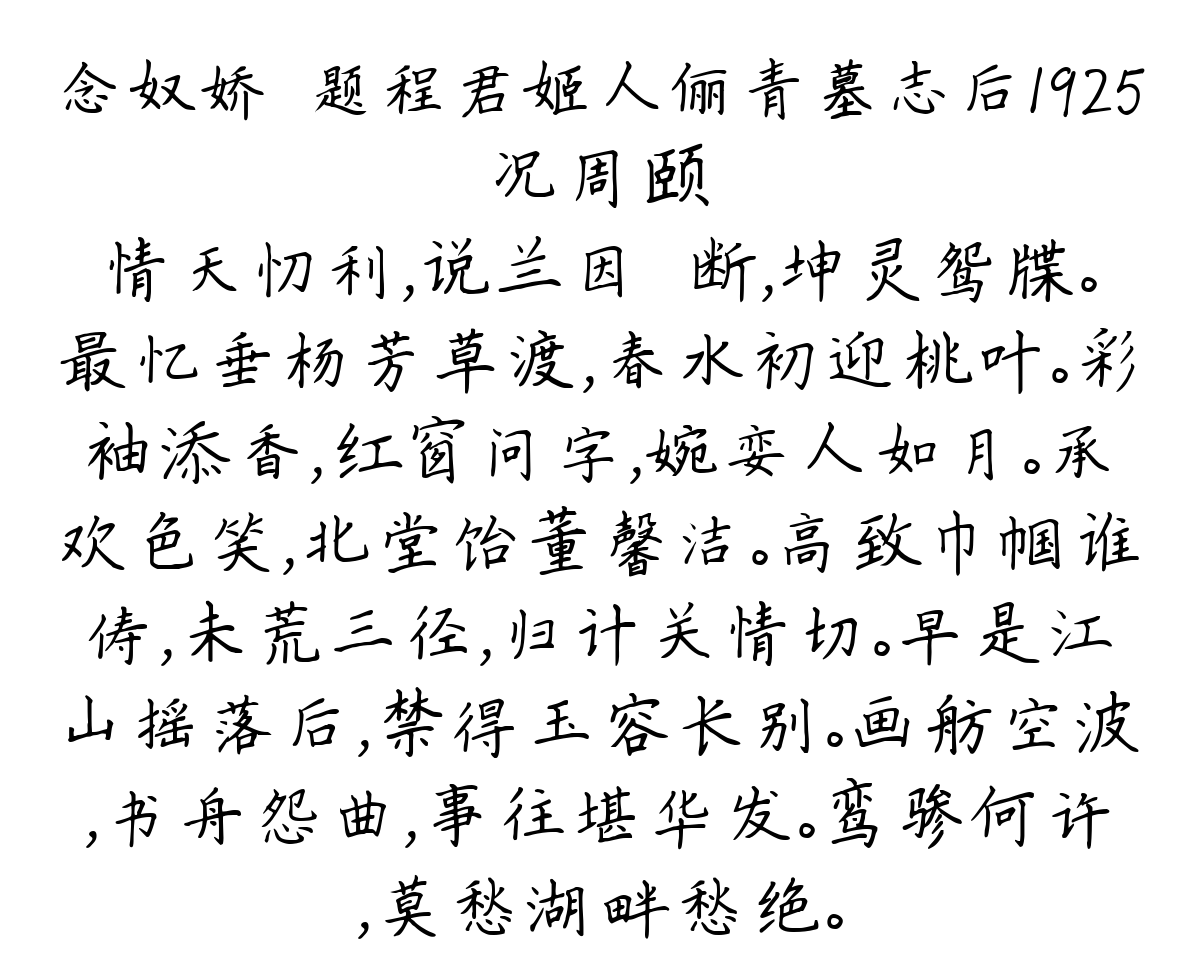 念奴娇 题程君姬人俪青墓志后1925
况周颐
情天忉利,说兰因 断,坤灵鸳牒。
最忆垂杨芳草渡,春水初迎桃叶。彩
袖添香,红窗问字,婉娈人如月。承
欢色笑,北堂饴董馨洁。高致巾帼谁
俦,未荒三径,归计关情切。早是江
山摇落后,禁得玉容长别。画舫空波
,书舟怨曲,事往堪华发。鸾骖何许
,莫愁湖畔愁绝。